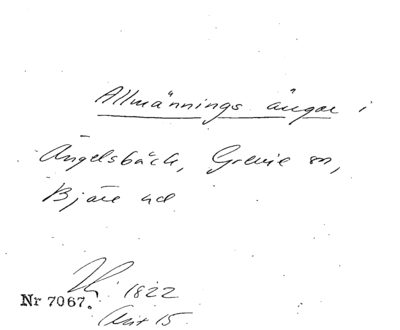 Allmännings ängar i
Ängelsbäck, Grevie sn,
Bjäre hd
1822
Nr 7067.
15